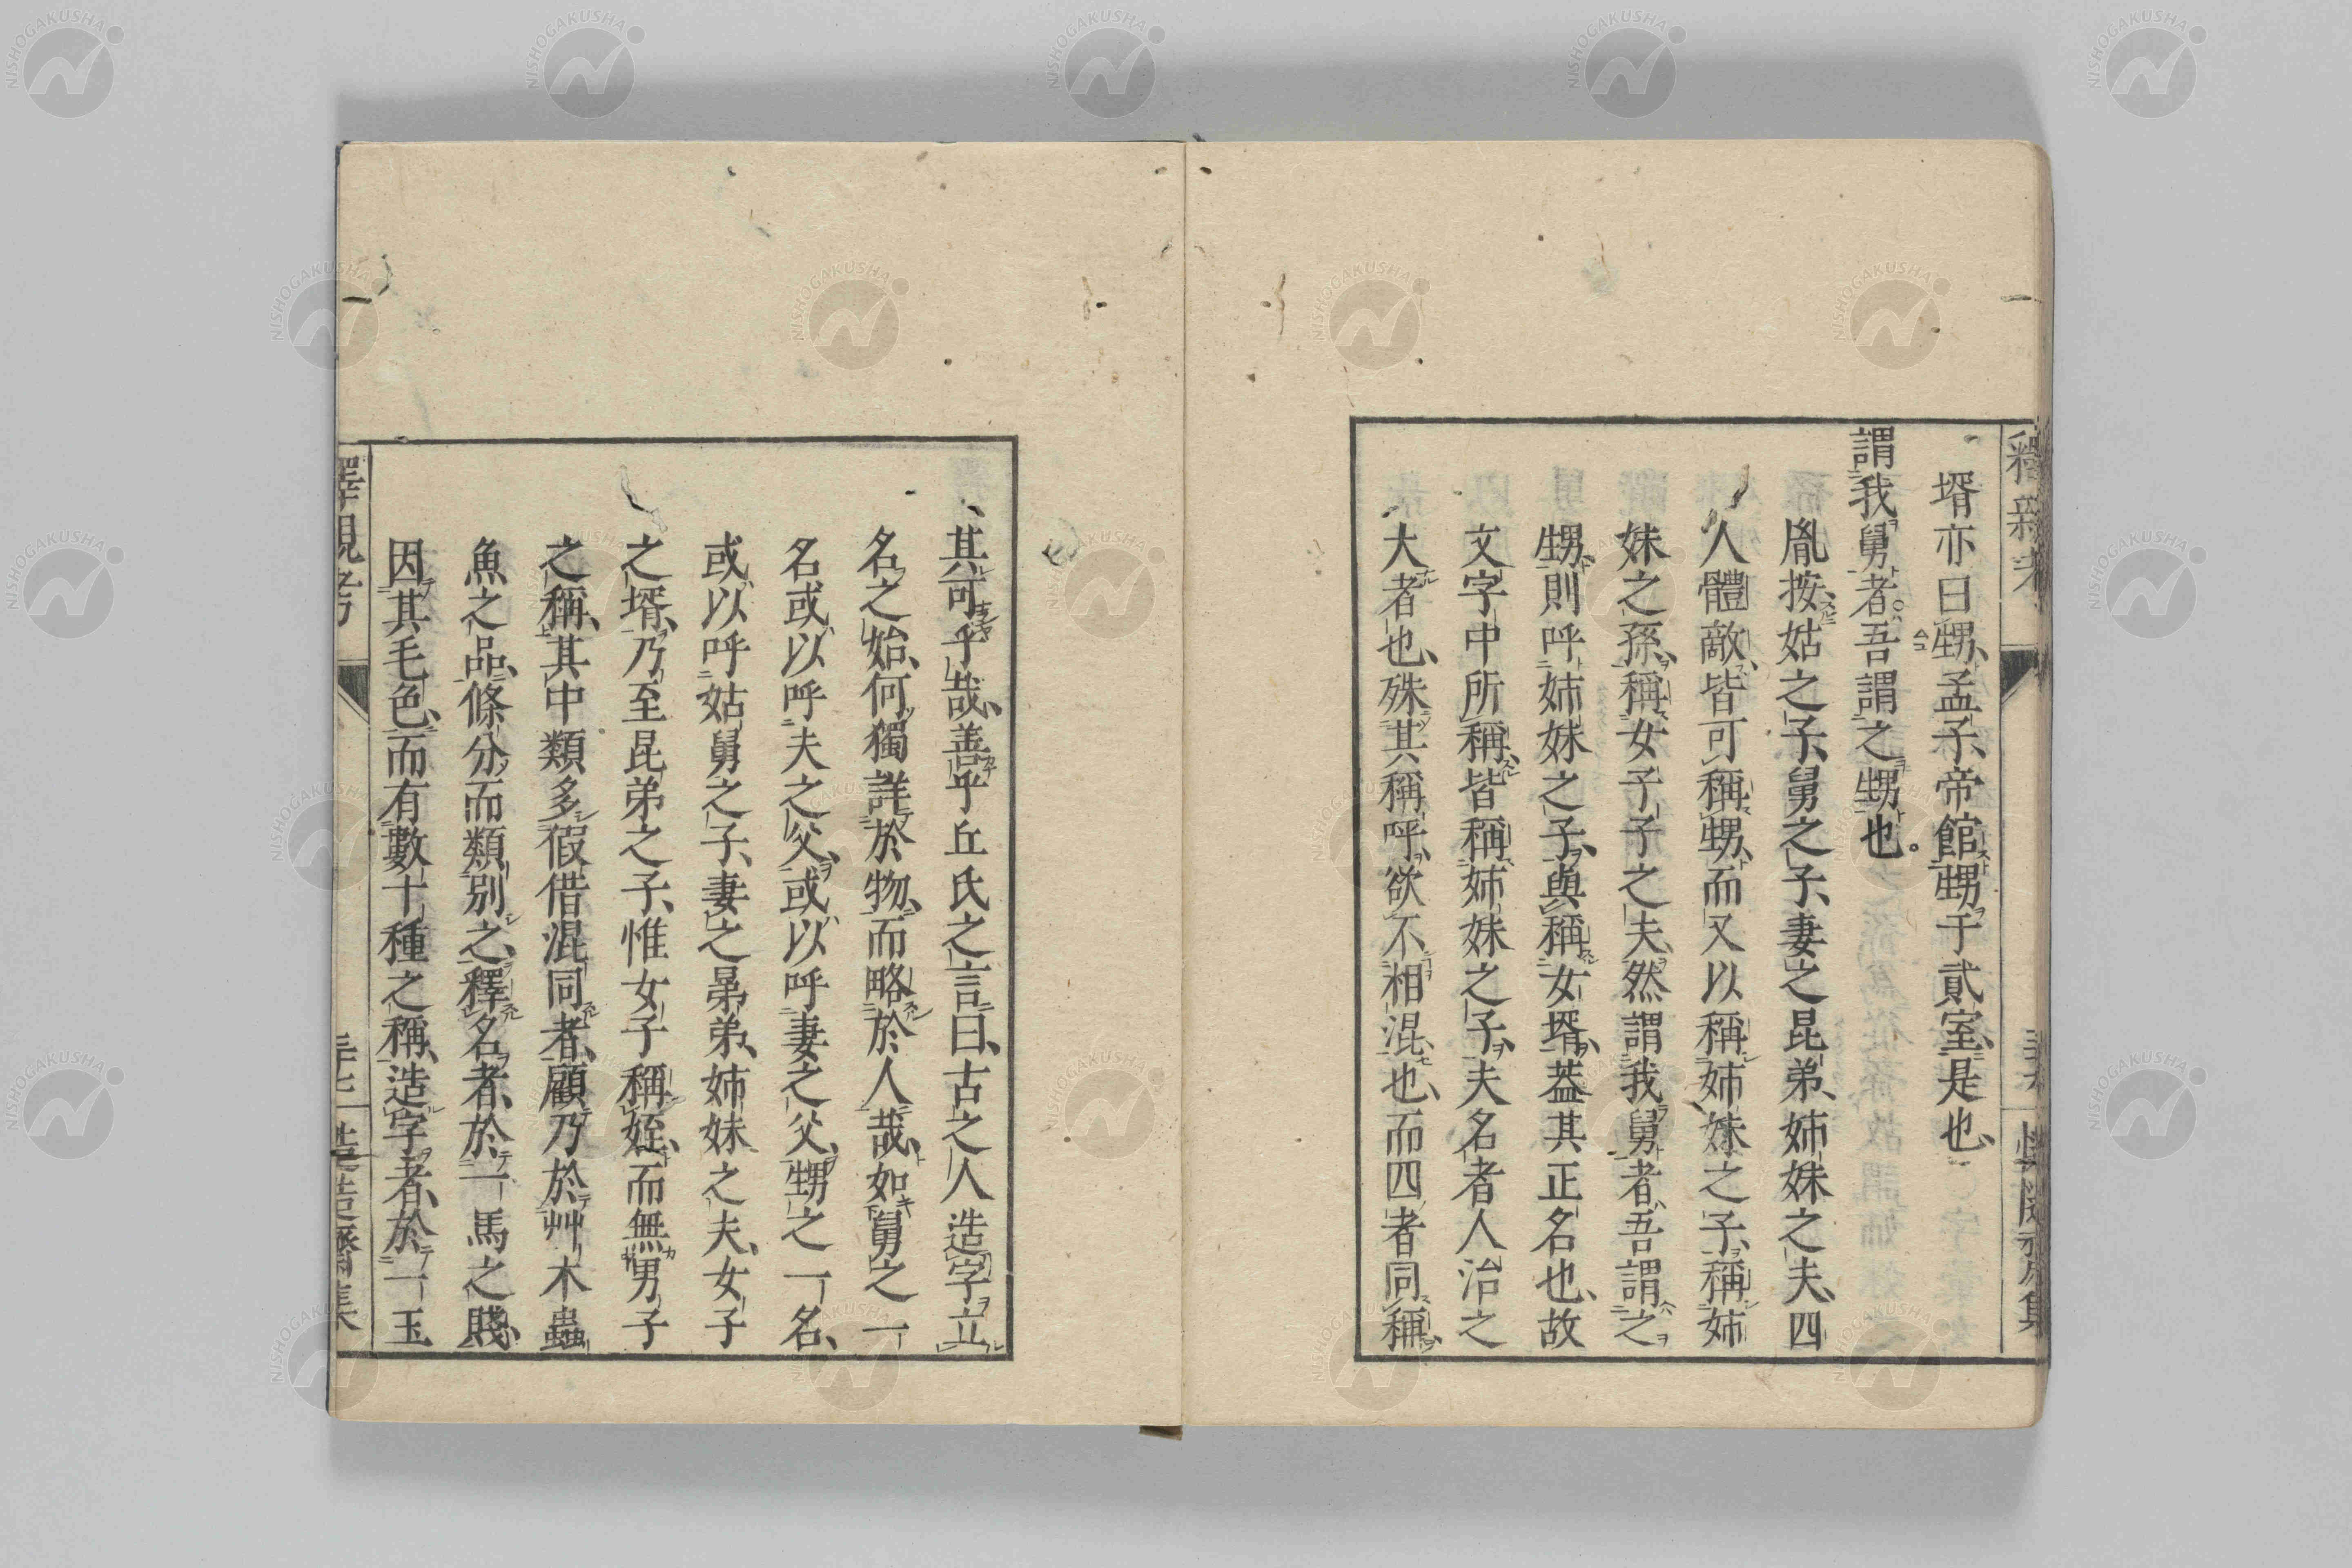 壻亦曰甥、孟子、帝館甥于貳室、是也、
謂我舅者吾謂之甥也。
胤按、姑之子、舅之子、妻之昆弟、姉妹之夫、四
人體敵、皆可稱甥、而又以稱姉妹之子、稱姉
妹之孫、稱女子子之夫、然謂我舅者、吾謂之
甥、則呼姉妹之子、與稱女壻、葢其正名也、故
文字中所稱、皆稱姉妹之子、夫名者人治之
大者也、殊其稱呼、欲不相混也、而四者同稱、
其可乎哉、善乎丘氏之言曰、古之人造字立
名之始、何獨詳於物、而略於人哉、如舅之一
名或以呼夫之父、或以呼妻之父、甥之一名、
或以呼姑舅之子、妻之晜弟、姉妹之夫、女子
之壻、乃至昆弟之子、惟女子稱姪、而無男子
之稱、其中類多假借混同者、顧乃於艸木蟲
魚之品、條分而類別之、釋名者、於一馬之賤、
因其毛色、而有數十種之稱、造字者、於一玉
釋親考
NISHOGAKUSHA